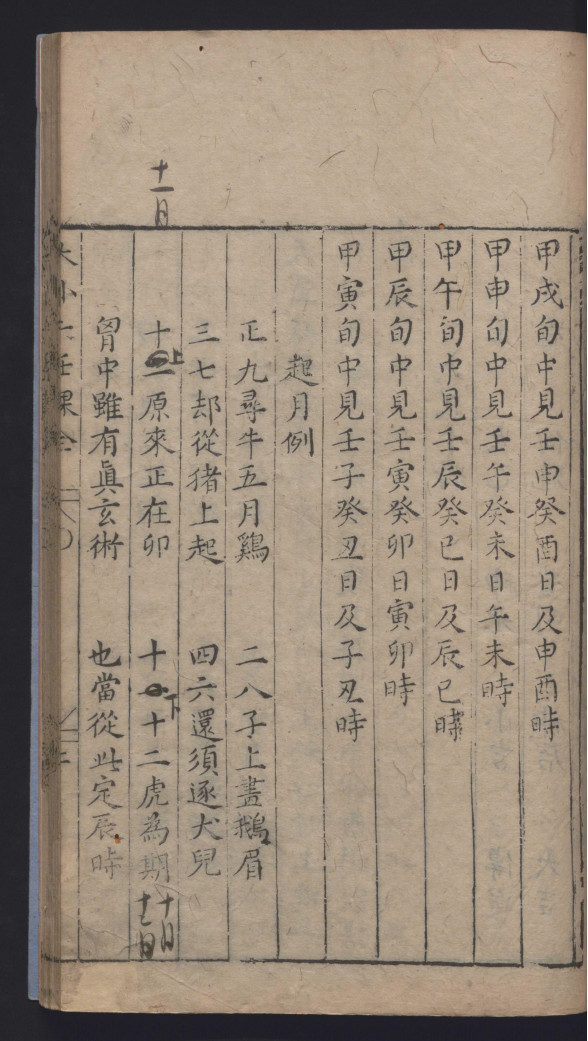 甲戌旬中見壬申癸酉日及申酉時
甲申旬中見壬午癸未日午未時
甲午旬中見壬辰癸巳日及辰巳時
甲辰旬中見壬寅癸卯日寅卯時
甲寅旬中見壬子癸丑日及子丑時
起月例
正九尋牛五月鷄 二八子上畫鵝眉
三七却從猪上起 四六還須逐犬兒
十一月
十一上原來正在卯 十下十二虎為期
十月
十一月
胷中雖有眞玄術 也當從此定辰時
大小六壬課全